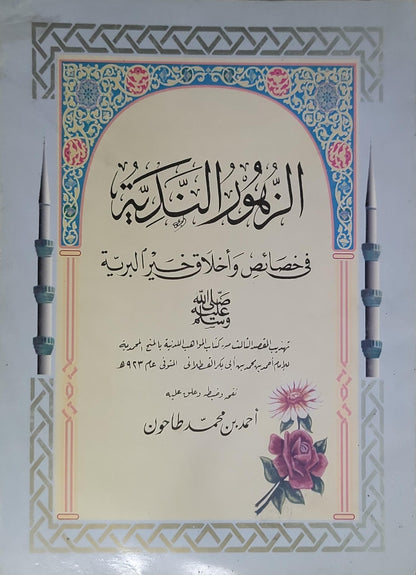 الزهور الندية
في خصائص وأخلاق خير البرية
صلى الله عليه وسلم
تهذيب المقصد الثالث من كتاب المواهب اللدنية بالمنح المحمدية
للإمام أحمد بن محمد بن أبي بكر القسطلاني المتوفى عام ٩٢٣ هـ
وضبطه وعلق عليه
أحمد بن محمد طاحون